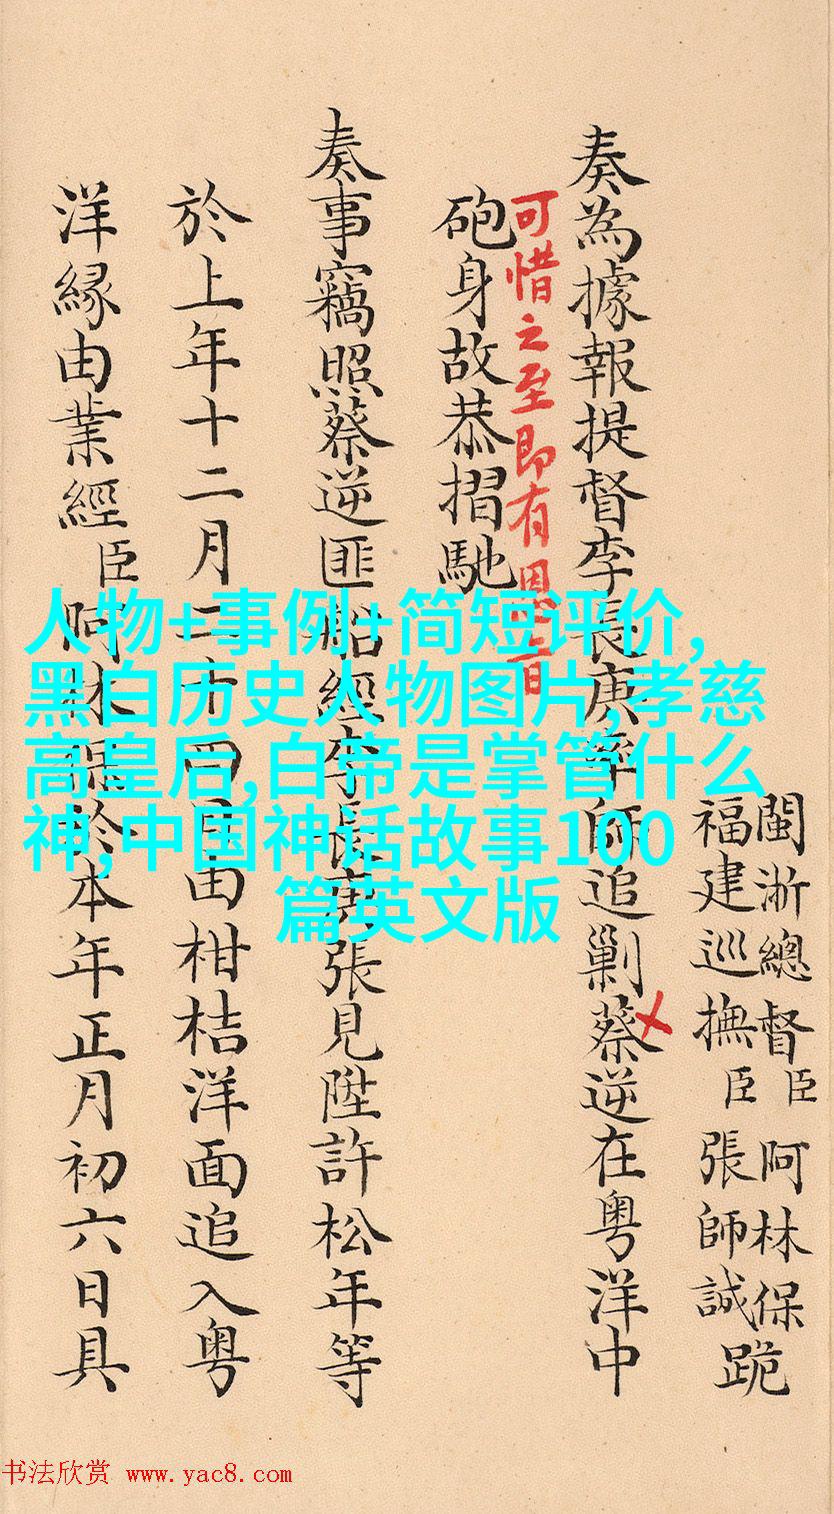 閩浙總督臣阿林保
福建巡撫臣張師誠跪
奏為據報提督李長庚率師追剿蔡逆在粤洋中
可惜之至即有恩旨
砲身故恭摺馳
奏事竊照蔡逆匪船經李長庚張見陞許松年等
於上年十二月二十四日由柑桔洋面追入粤
洋緣由業經臣阿林保於本年正月初六日具
人物+事例+简短评价,
黑白历史人物图片,孝慈
高皇后,白帝是掌管什么
神,中国神话故事100
篇英文版
书法欣赏 www.yac8.com